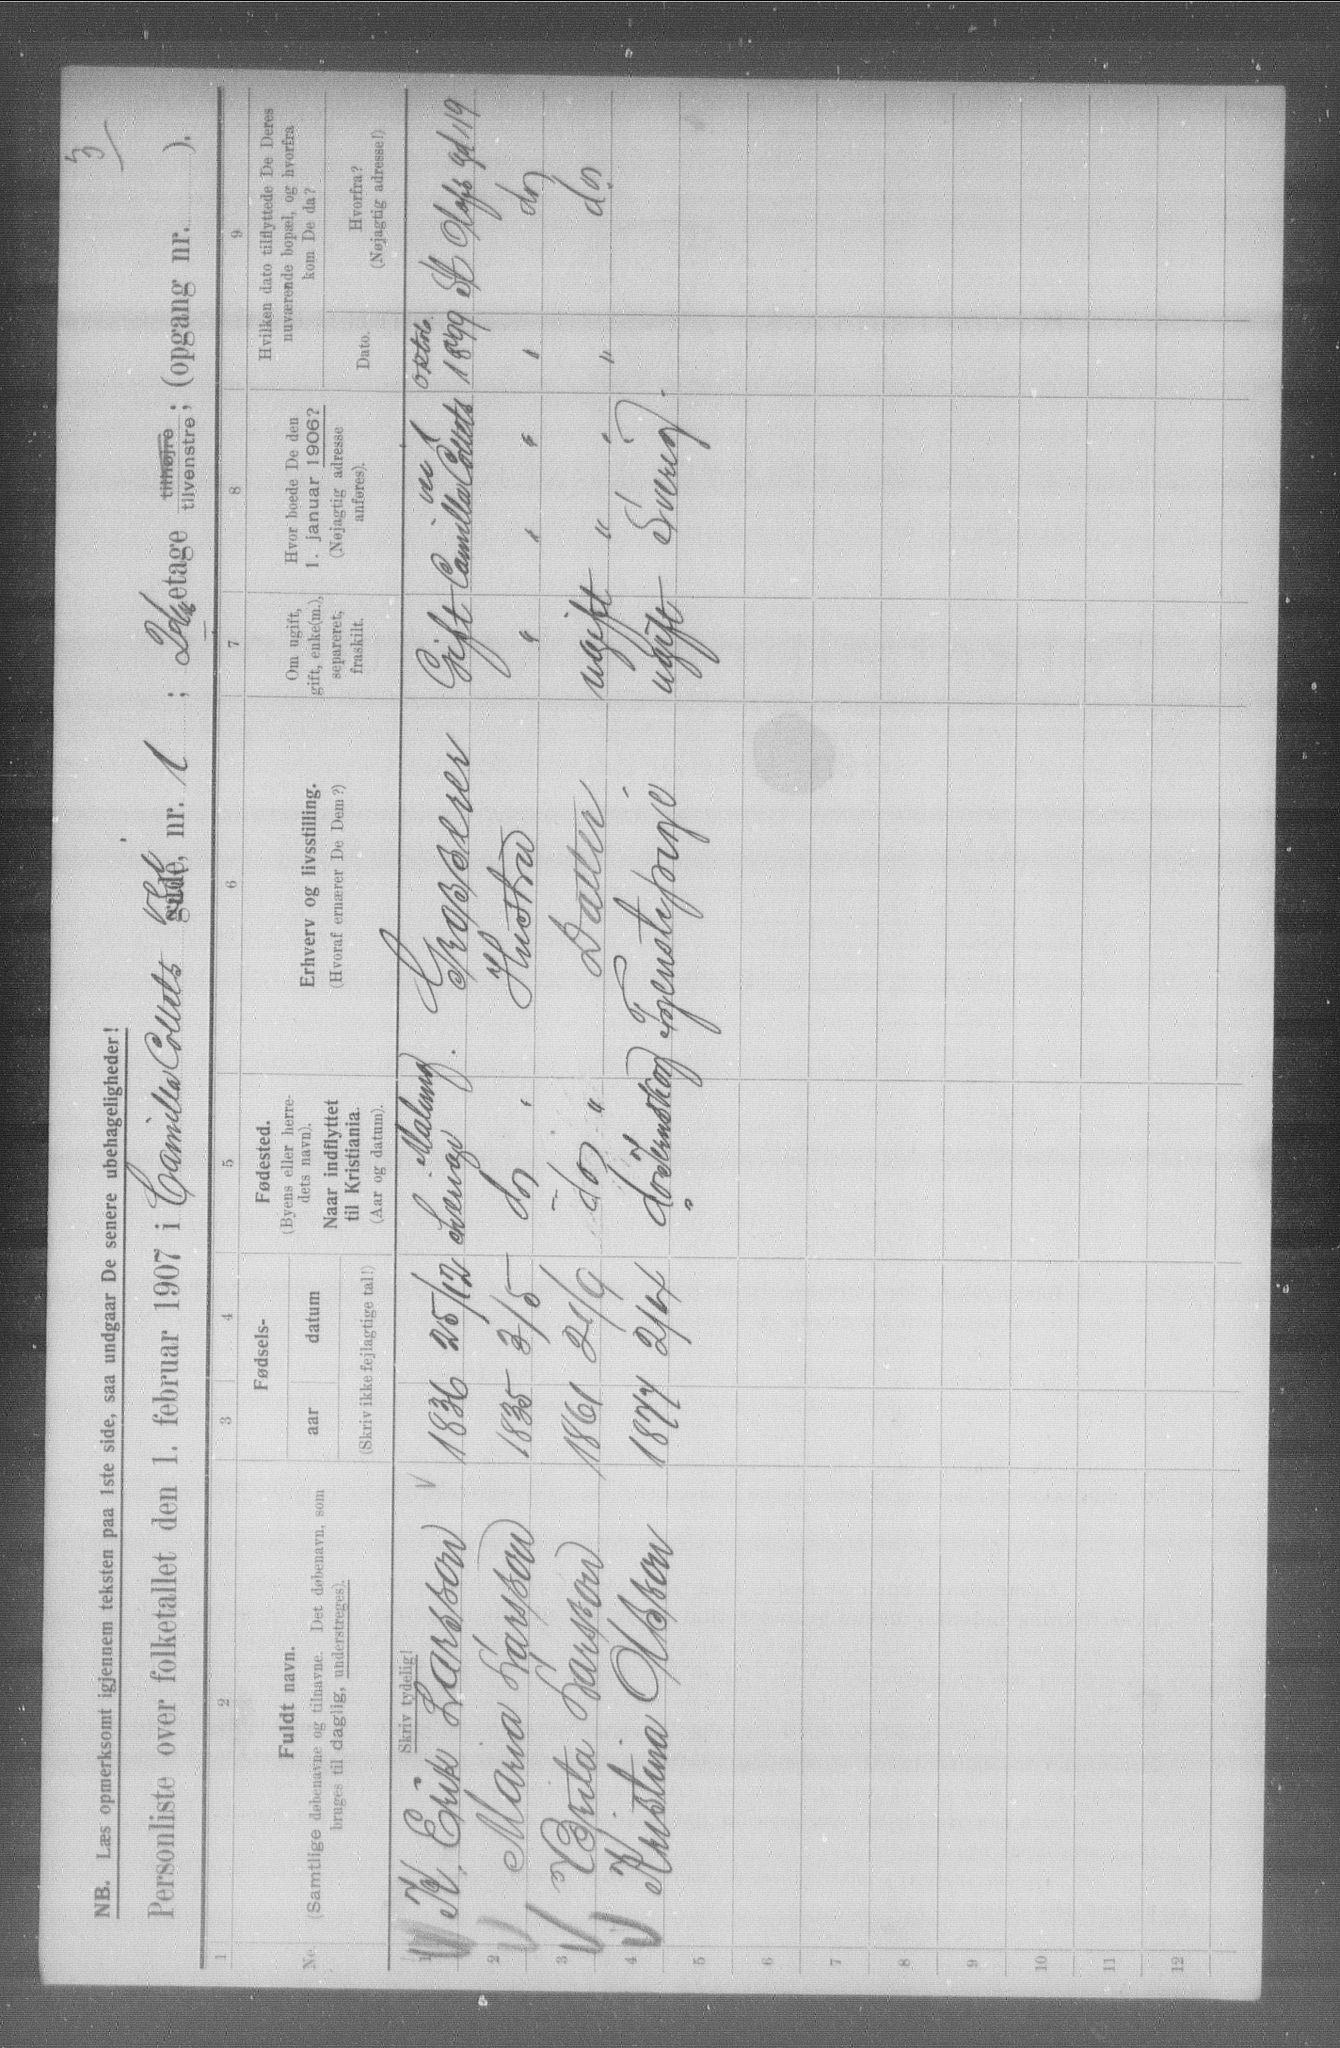 3
NB. Læs opmerksomt igjennem teksten paa 1ste side, saa undgaar De senere ubehageligheder!
Personliste over folketallet den 1. februar 1907 i Camilla Colletts vei gade, nr. 1 ; 2den etage tilhøjre tilvenstre ; (opgang nr. ).
1 2 3 4 5 6 7 8 9
Nr.
Fuldt navn.
(Samtlige døbenavne og tilnavne. Det døbenavn, som
bruges til daglig, understreges).
Fødsels-
aar datum
(Skriv ikke fejlagtige tal!)
Fødested.
(Byens eller herre-
dets navn).
Naar indflyttet
til Kristiania.
(Aar og datum).
Erhverv og livsstilling.
(Hvoraf ernærer De Dem?)
Om ugift,
gift, enke(m.),
separeret,
fraskilt.
Hvor boede De den
1. januar 1906?
(Nøjagtig adresse
anføres).
Hvilken dato tilflyttede De Deres
nuværende bopæl, og hvorfra
kom De da?
Dato.
Hvorfra?
(Nøjagtig adresse!)
Skriv tydelig!
1 K. Erik Larsson 1836 25/12 Malung Sverige. Grosserer Gift Camilla Colletts vei 1 oktob. 1899 St Olafs gd 19
2 Maria Larsson 1835 3/5 do " Hustru " " " " do
3 Brita Larsson 1861 21/9 do " Datter ugift " " " do
4 Kristina Olsson 1877 2/4 Tjenestepige ugift Sverig.
5
6
7
8
9
10
11
12